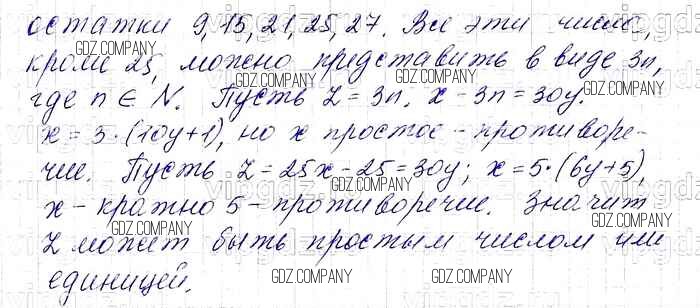 остатки 9, 15, 21, 25, 27. Все эти числа,
кроме 25, можно представить в виде 3n,
где n ∈ N. Пусть Z = 3n. x - 3n = 30y.
x = 3·(10y+1), но x простое - противоре-
чие. Пусть Z = 25x - 25 = 30y; x = 5·(6y+5),
x - кратно 5 - противоречие. Значит
Z может быть простым числом или
единицей.
GDZ.COMPANY
GDZ.COMPANY
GDZ.COMPANY
GDZ.COMPANY
GDZ.COMPANY
GDZ.COMPANY
GDZ.COMPANY
GDZ.COMPANY
GDZ.COMPANY
GDZ.COMPANY